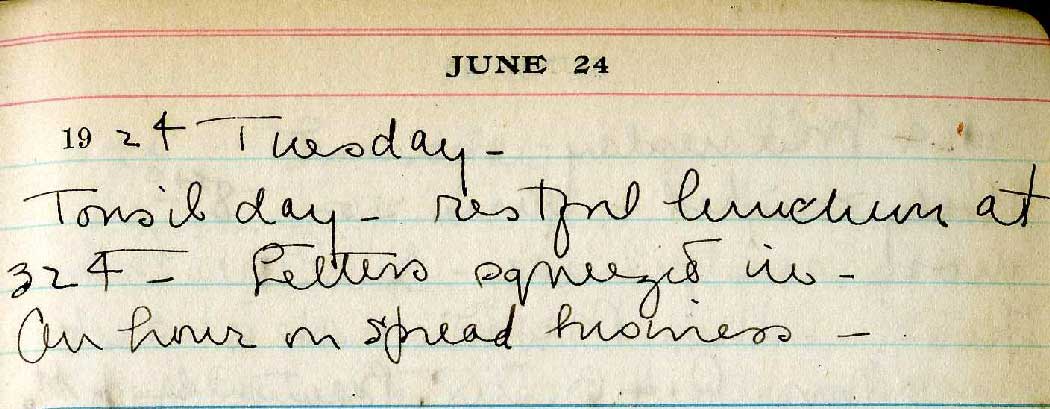 JUNE 24
1924 Tuesday -
Tonsil day - restful luncheon at
324 - Letters squeezed in -
An hour on spread business -